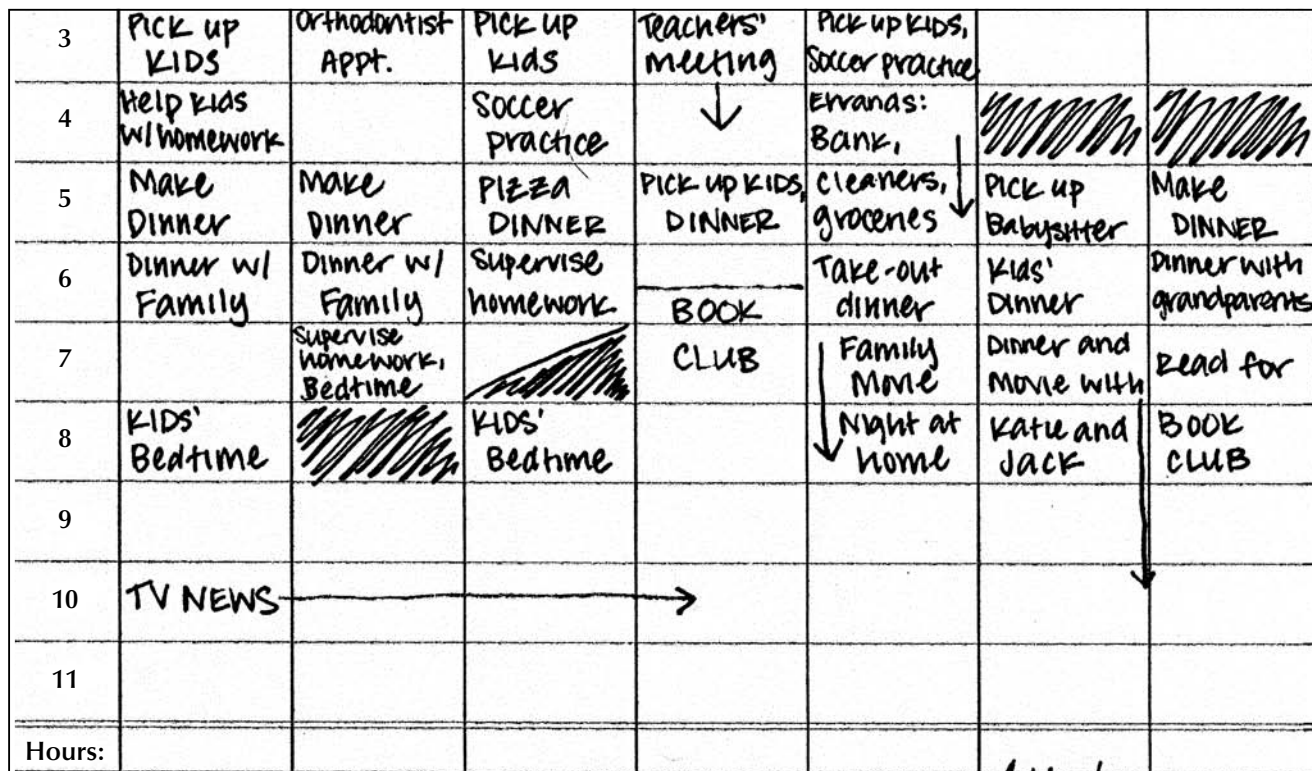 3
PICK UP
KIDS
Orthodontist
APPT.
PICK UP
KIDS
Teachers'
meeting
PICK UP KIDS,
Soccer practice
4
Help KIDS
W/homework
Soccer
practice
Errands:
Bank,
5
Make
Dinner
Make
Dinner
PIZZA
DINNER
PICK UP KIDS,
DINNER
cleaners,
groceries
PICK UP
Babysitter
Make
DINNER
6
Dinner w/
Family
Dinner w/
Family
Supervise
homework
BOOK
Take-out
dinner
KIDS'
Dinner
Dinner with
grandparents
7
Supervise
homework,
Bedtime
CLUB
Family
Movie
Dinner and
Movie with
Read for
8
KIDS'
Bedtime
KIDS'
Bedtime
Night at
home
Katie and
Jack
BOOK
CLUB
9
10
TV NEWS
11
Hours: